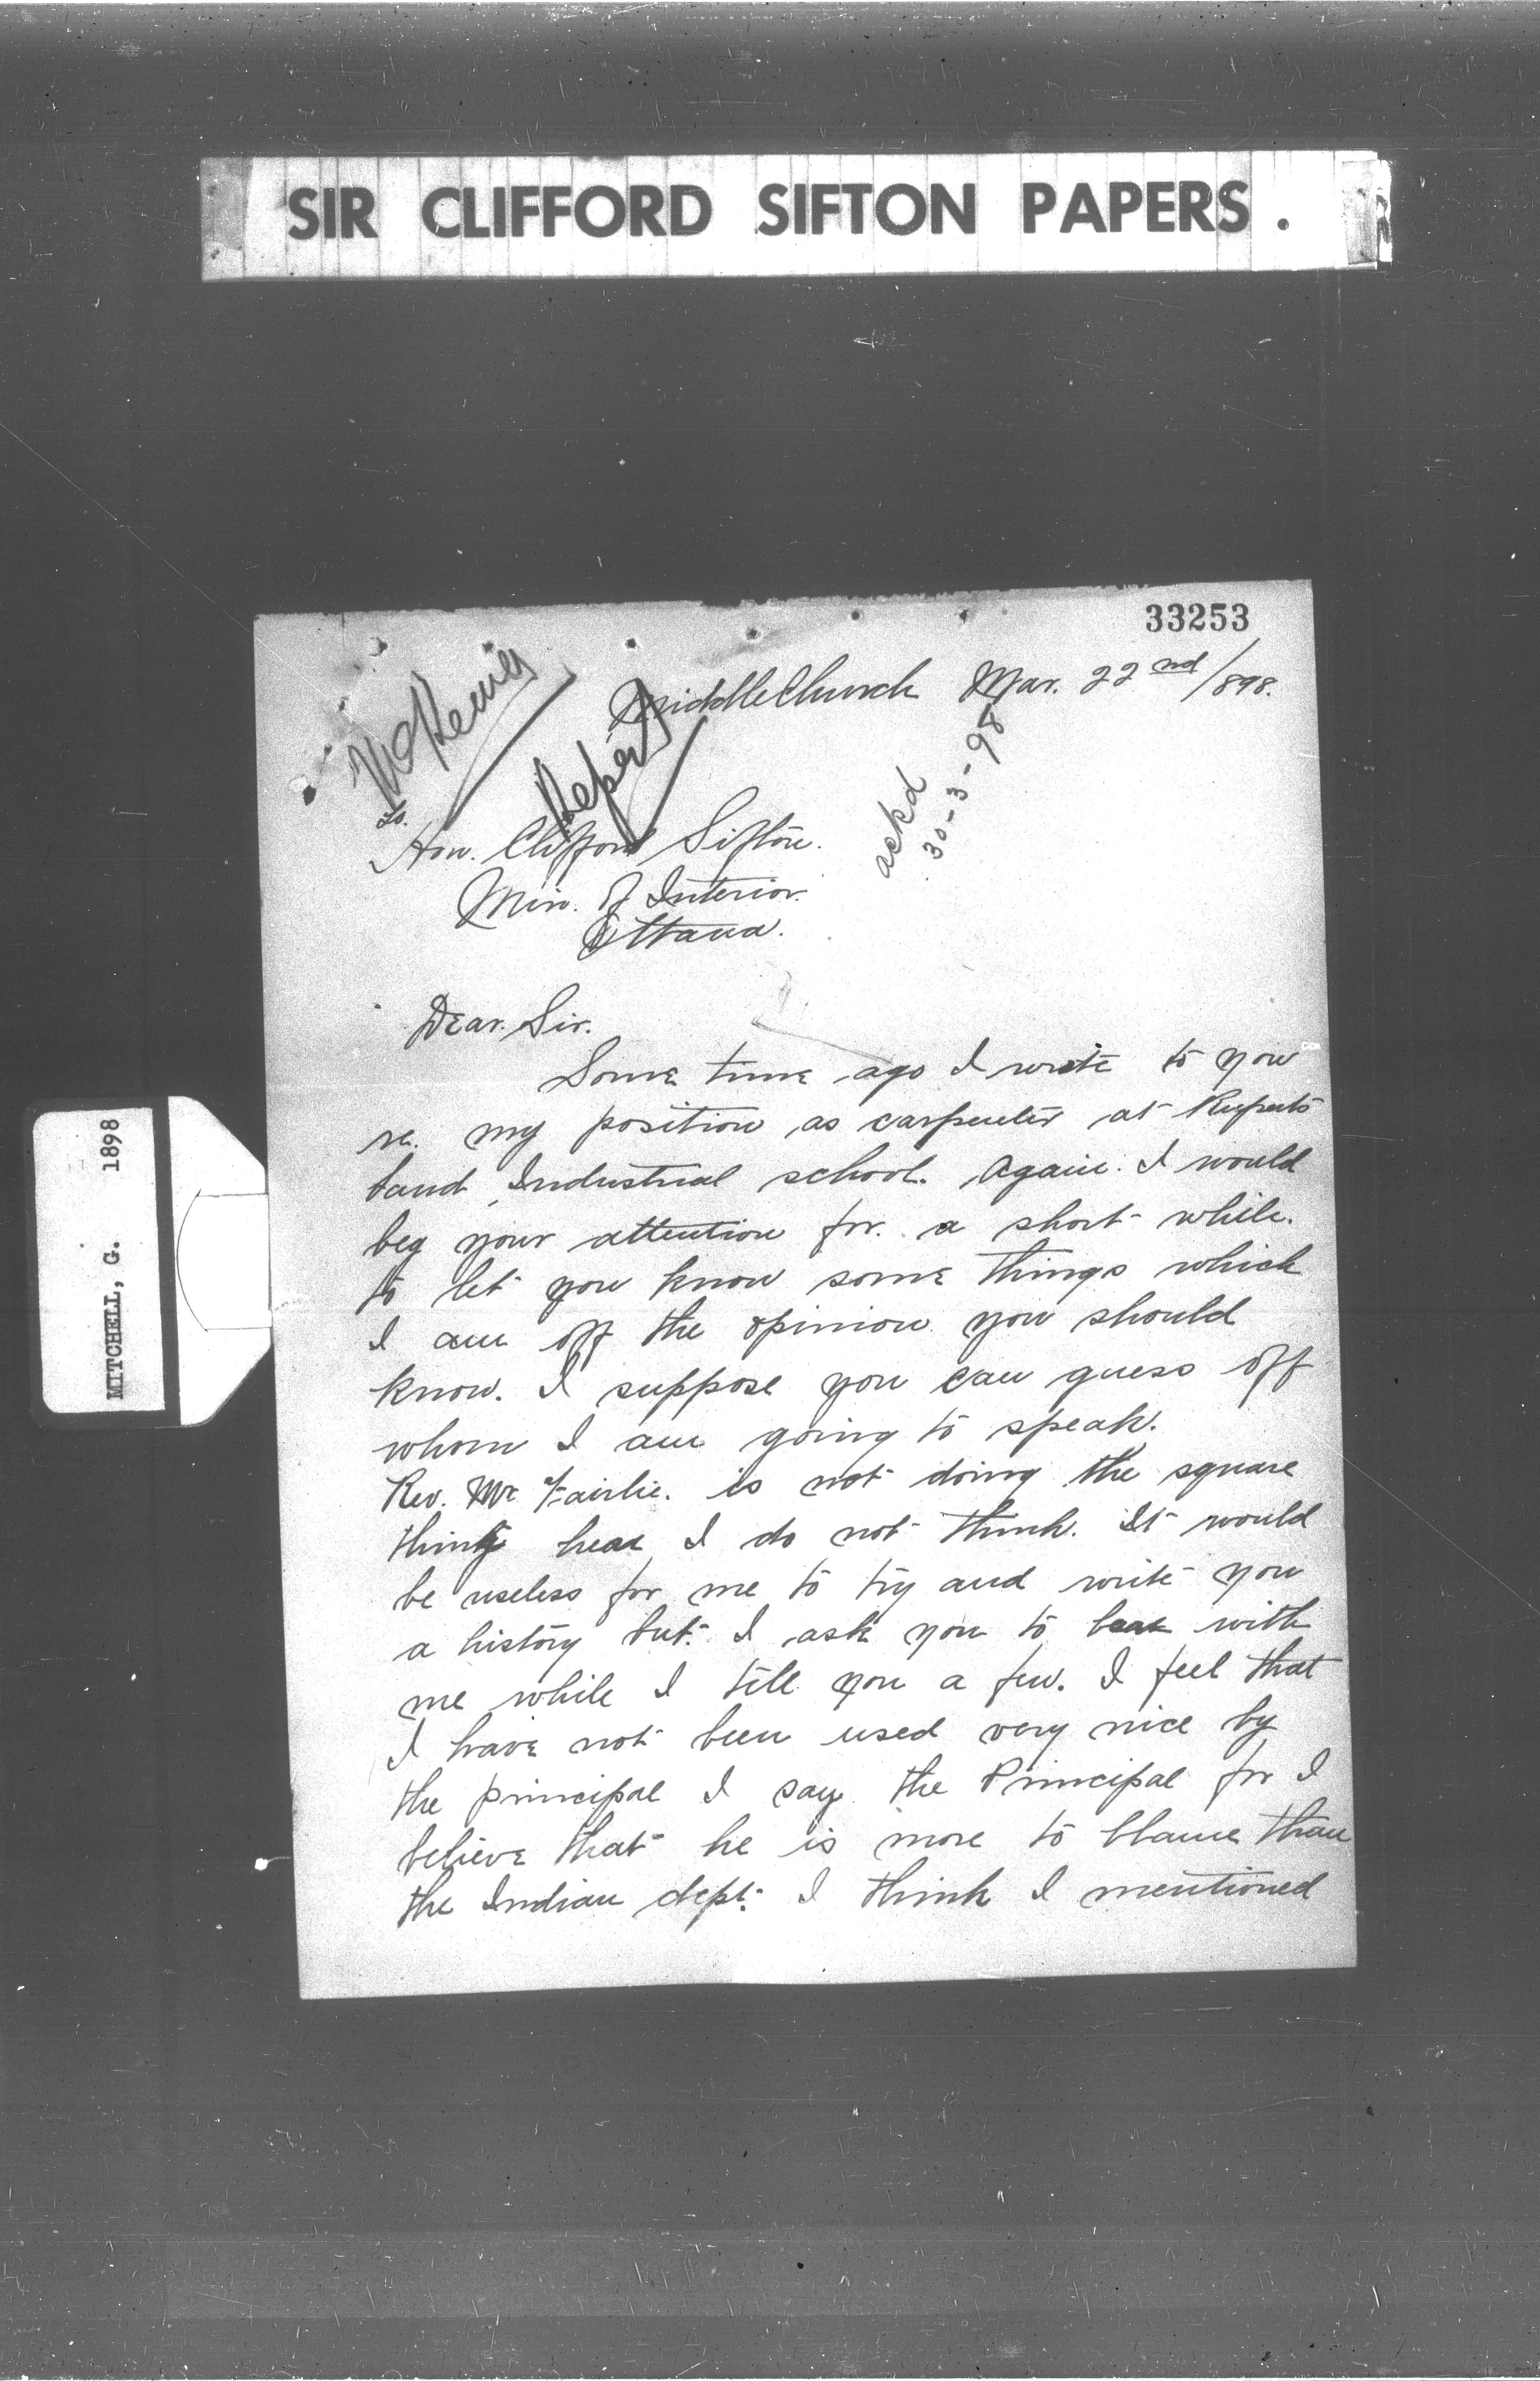 SIR CLIFFORD SIFTON PAPERS.
33253
MiddleChurch Mar. 22nd/1898.
McKenna
Report
ackd
30-3-98
To.
Hon. Clifford Sifton.
Min. of Interior.
Ottawa.
Dear. Sir.
Some time ago I wrote to you
re. my position as carpenter at Ruperts
land Industrial school. Again. I would
beg your attention for. a short while.
to let you know some things which
I am off the opinion you should
know. I suppose you can guess off
whom I am going to speak.
Rev. Mr. Fairlie. is not doing the square
thing hear I do not think. It would
be useless for me to try and write you
a history but. I ask you to bear with
me while I tell you a few. I feel that
I have not been used very nice by
the principal I say the Principal for I
believe that he is more to blame than
the Indian dept. I think I mentioned
MITCHELL, G. 1898